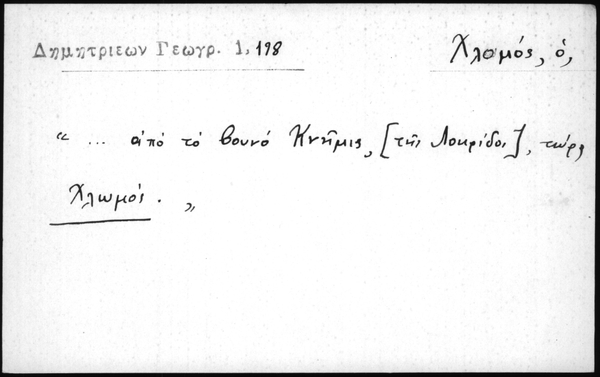 Δημητριεων Γεωγρ. 1,198
Χλομός, ὁ,
“ ... ἀπό τό βουνό Κνῆμις, [τῆς Λοκρίδος], τώρα
Χλωμός. „